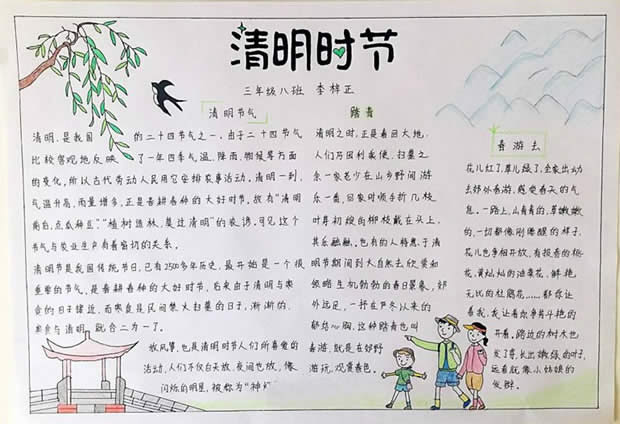 清明时节
三年级八班 李梓正
清明节气
清明,是我国 的二十四节气之一。由于二十四节气
比较客观地反映 了一年四季气温、降雨、物候等方面
的变化,所以古代劳动人民用它安排农事活动。清明一到,
气温升高,雨量增多,正是春耕春种的大好时节。故有"清明
前后,点瓜种豆""植树造林,莫过清明"的农谚。可见这个
节气与农业生产有着密切的关系。
清明节是我国传统节日,已有2500多年历史。最开始是一个很
重要的节气,是春耕春种的大好时节,后来由于清明与寒
食的日子接近,而寒食是民间禁火扫墓的日子,渐渐的,
寒食与清明 就合二为一了。
放风筝,也是清明时节人们所喜爱的
活动。人们不仅白天放,夜间也放,像
闪烁的明星,被称为"神灯
踏青
清明之时,正是春回大地,
人们乃因利乘便,扫墓之
余一家老少在山乡野间游
乐一番,回家时顺手折几枝
叶芽初绽的柳枝戴在头上,
其乐融融。也有的人特意于清
明节期间到大自然去欣赏和
领略生机勃勃的春日景象,郊
外远足,一抒严冬以来的
郁结心胸,这种踏青也叫
春游,就是在郊野
游玩,观赏春色。
春游去
花儿红了,草儿绿了,全家出动
去郊外春游,感受春天的气
息。一路上,山青青的,草嫩嫩
的,一切都像刚睡醒的样子,
花儿也争相开放,有报春的桃
花,黄灿灿的油菜花,鲜艳
无比的杜鹃花……都你让
着我,我让着你争奇斗艳的
开着。路边的树木也
发了芽,长出嫩绿的叶子,
远看就像小姑娘的
发辫。